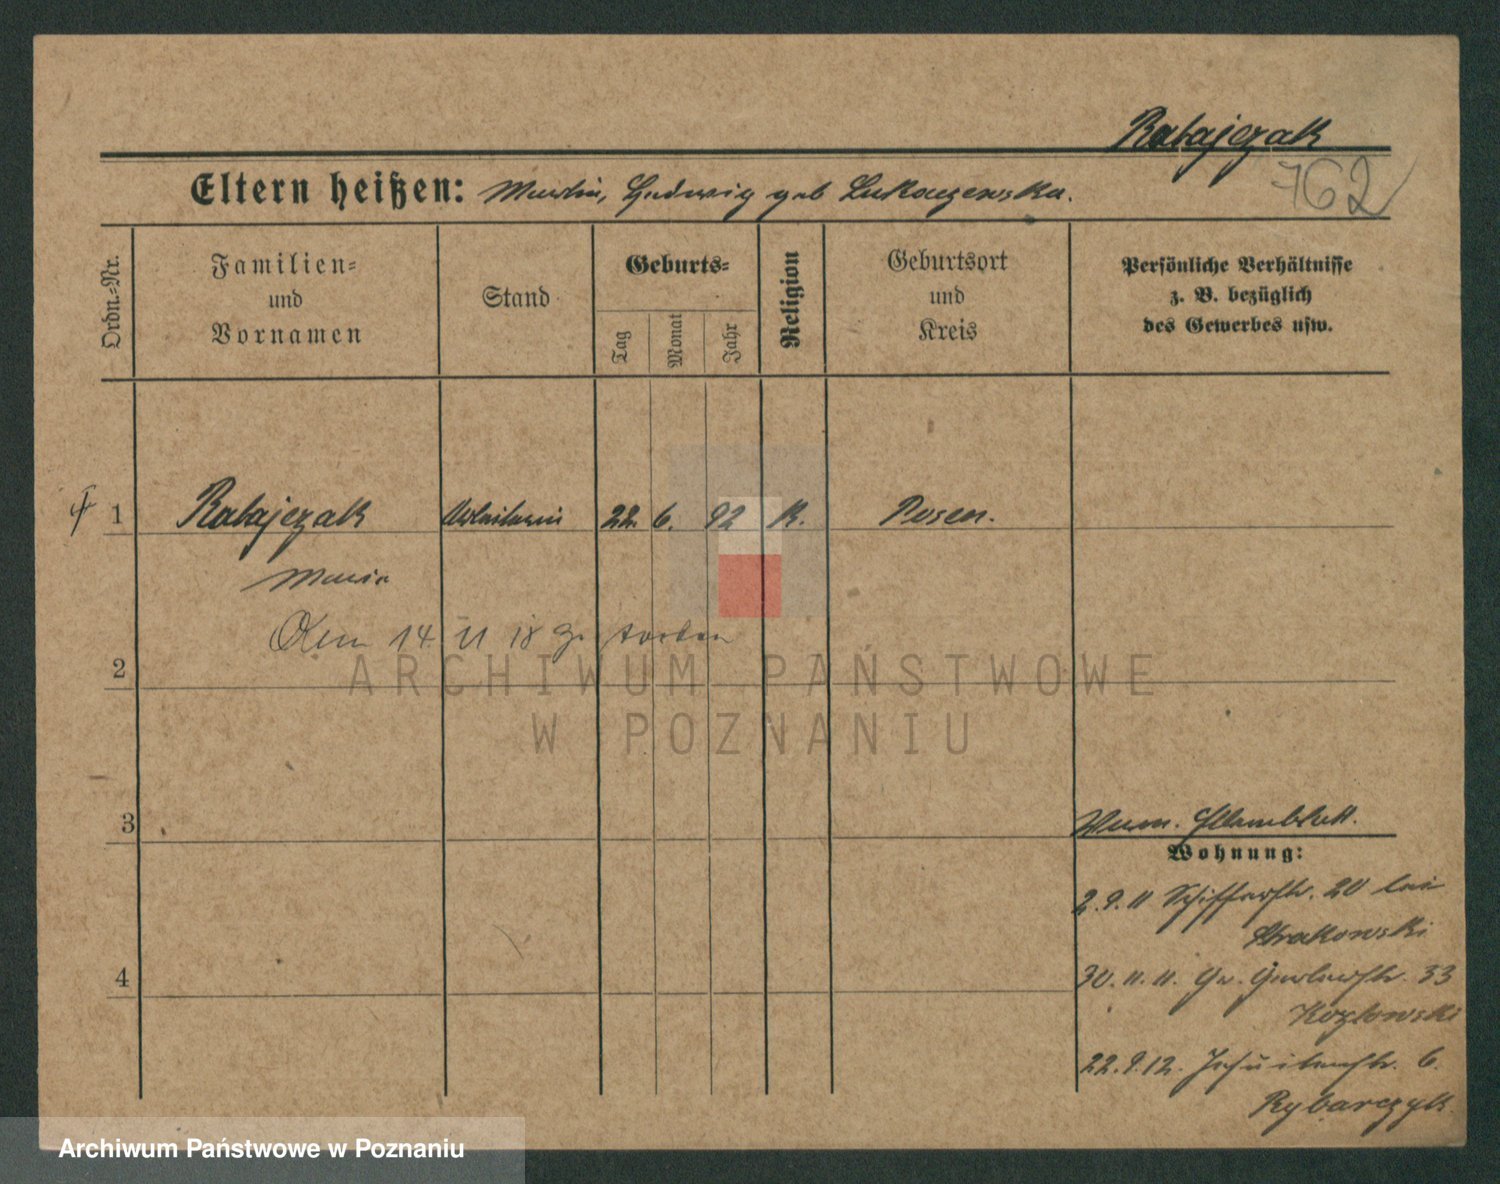 Ratajczak
762
Eltern heißen: Martin, Hedwig geb Lukaszewska.
Ordn.-Nr.
Familien-
und
Vornamen
Stand
Geburts-
Tag
Monat
Jahr
Religion
Geburtsort
und
Kreis
Persönliche Verhältnisse
z. B. bezüglich
des Gewerbes usw.
1 Ratajczak Arbeiterin 22. 6. 92 K. Posen.
Maria
Am 14 11 18 gestorben
2
3
4
Stammblatt.
Wohnung:
2.9.11 Schifferstr. 20 bei
Strakowski
30.11.11. Gr. Gerberstr. 33
Kozlowski
22.9.12. Jesuitenstr. 6.
Rybarczyk
ARCHIWUM PAŃSTWOWE
W POZNANIU
Archiwum Państwowe w Poznaniu